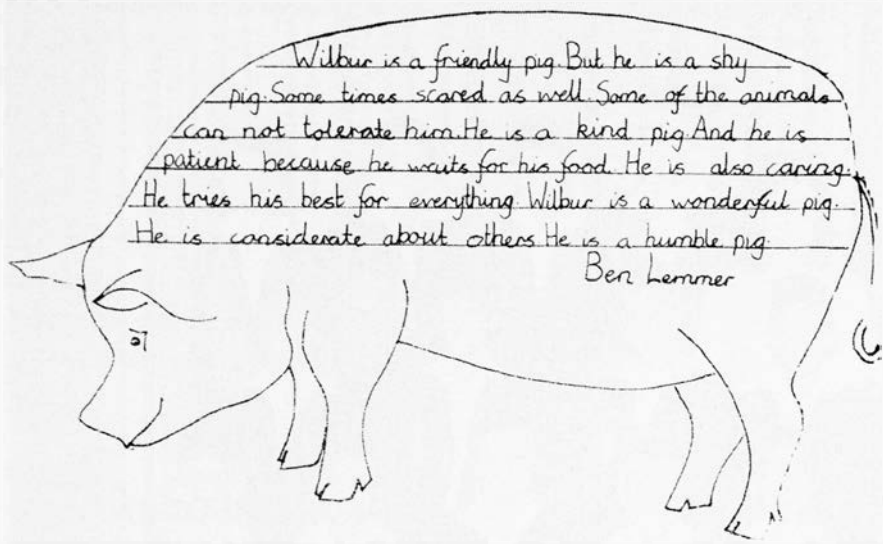 Wilbur is a friendly pig. But he is a shy
pig. Some times scared as well. Some of the animals
can not tolerate him. He is a kind pig. And he is
patient because he waits for his food. He is also caring.
He tries his best for everything. Wilbur is a wonderful pig.
He is considerate about others. He is a humble pig.
Ben Lemmer